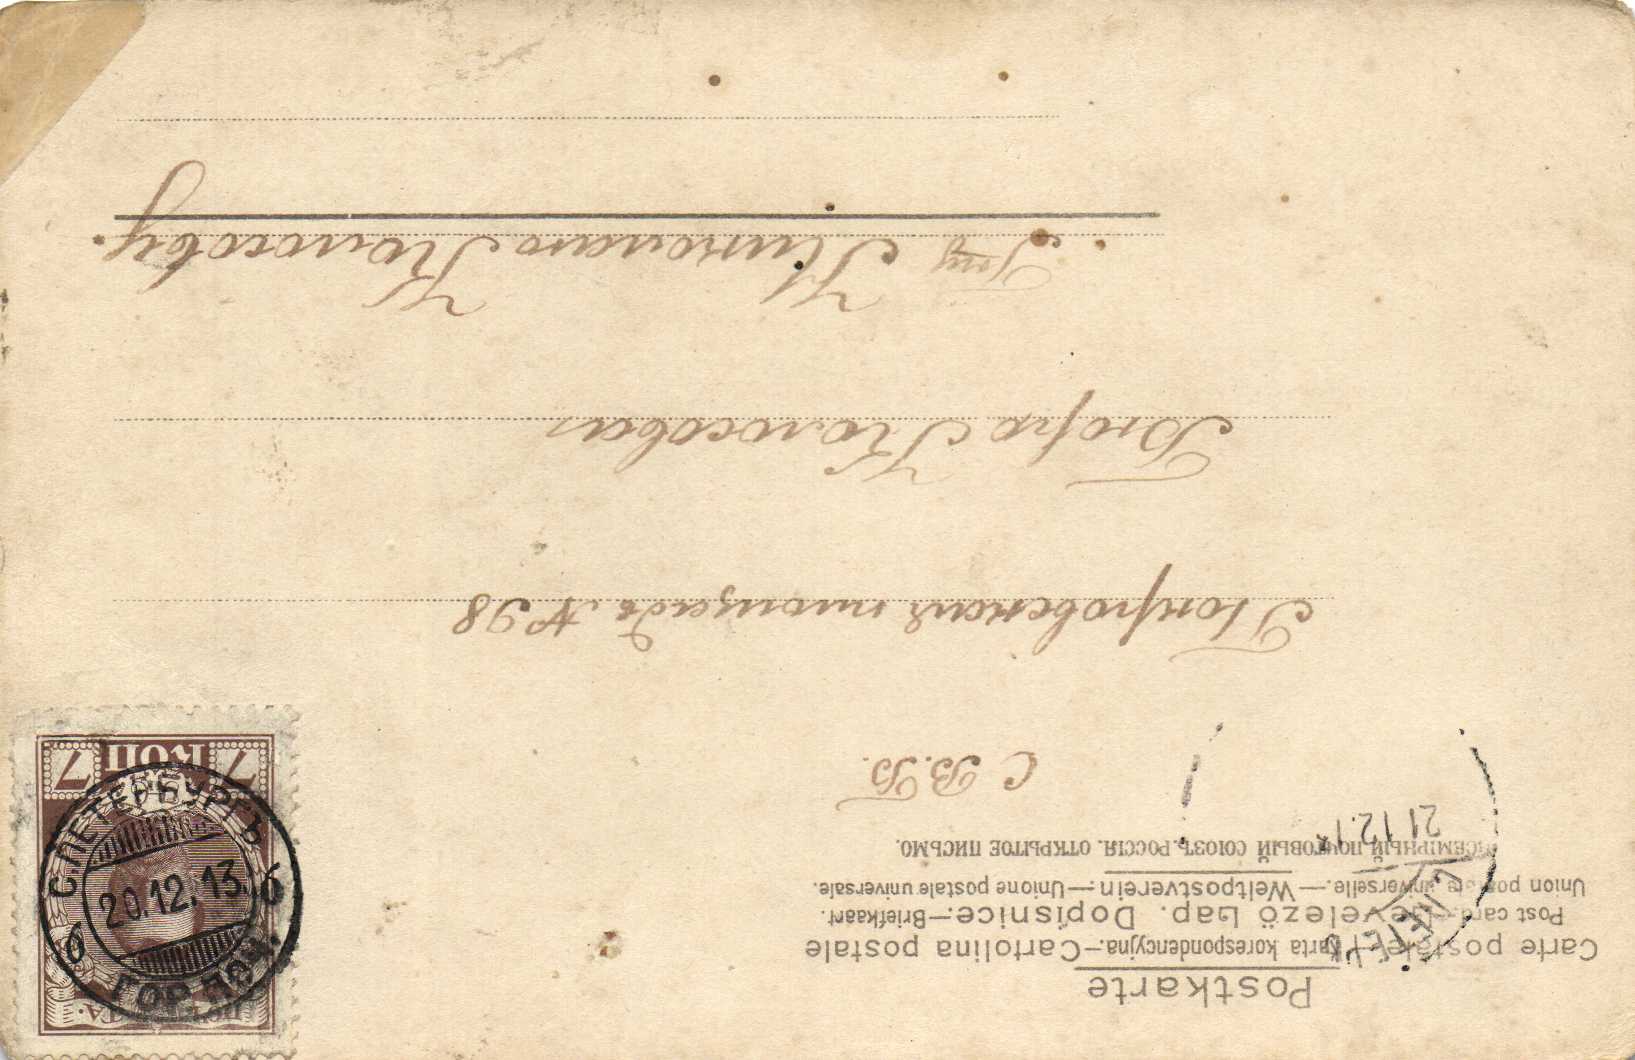 Postkarte
Carte postale.—Karta korespondencyjna.—Cartolina postale
Post card.—Levelező Lap. Dopisnice.—Briefkaart.
Union postale universelle.—Weltpostverein.—Unione postale universale.
ВСЕМІРНЫЙ ПОЧТОВЫЙ СОЮЗЪ. РОССІЯ. ОТКРЫТОЕ ПИСЬМО.
21.12.1
С В. Б.
Покровская площадь № 98
Бюро Колосова
Колосову.
7 КОП 7
С.ПЕТЕРБУРГЪ
20.12.13.
6 6
ГОР. ПОЧ.